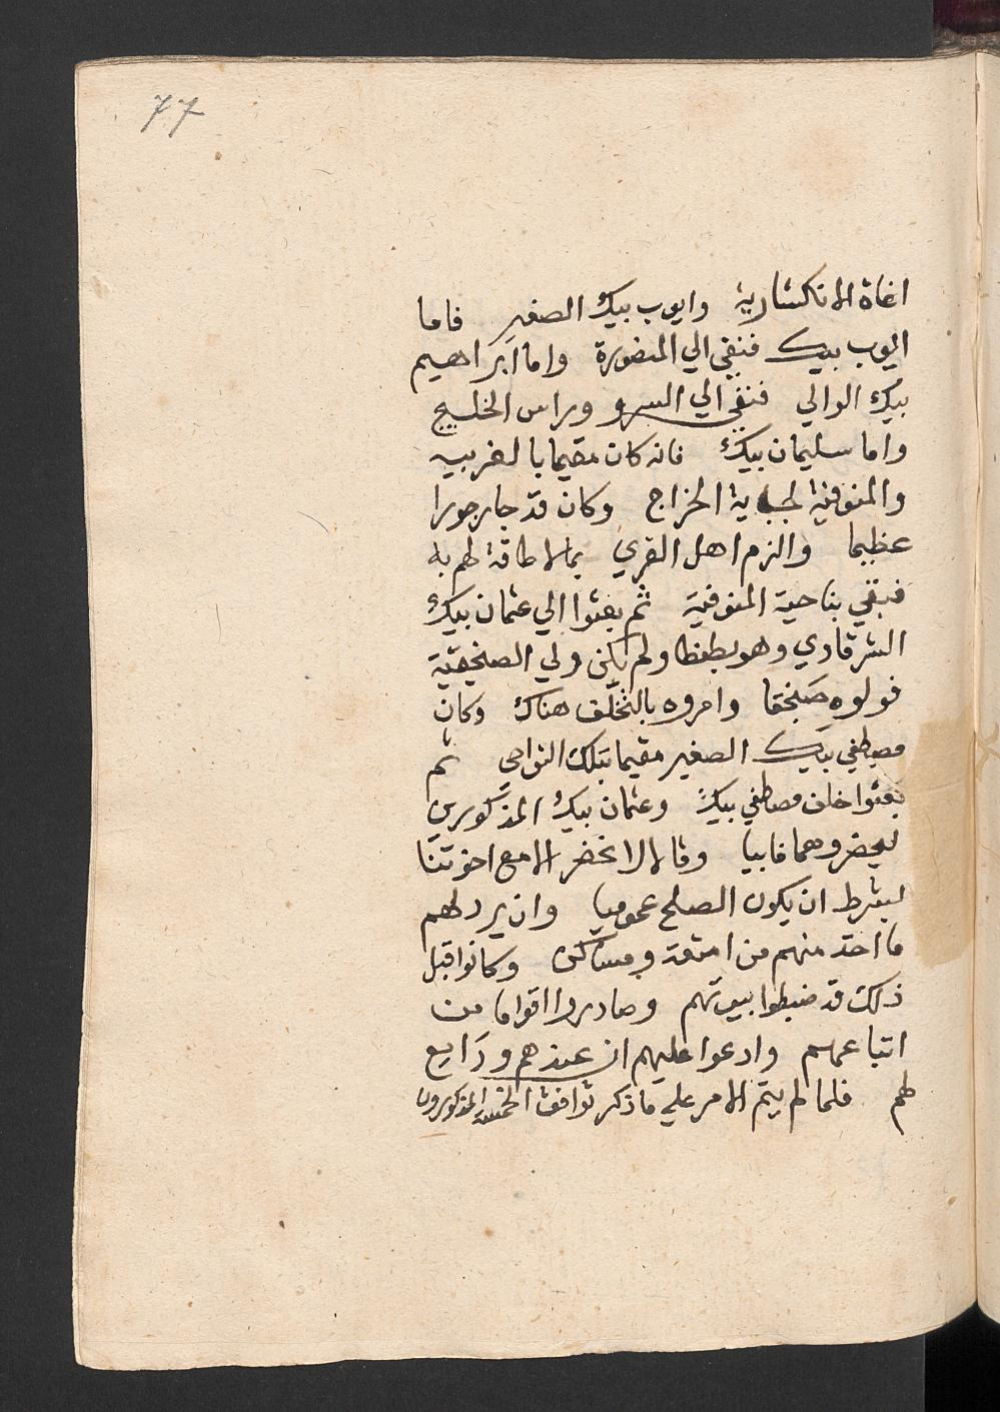 77
اغاة الانكشارية وايوب بيك الصغير فاما
ايوب بيك فنفي الي المنصورة واما ابراهيم
بيك الوالي فنفي الي السرو وراس الخليج
واما سليمان بيك فانه كان مقيما بالغربيه
والمنوفية لجباية الخراج وكان قد جار جورا
عظيما والزم اهل القري بما لا طاقة لهم به
فبقي بناحية المنوفية ثم بعثوا الي عثمان بيك
الشرقاوي وهو بطنطا ولم يكن ولي الصنجقية
فولوه صنجقا وامروه بالتخلف هناك وكان
مصطفي بيك الصغير مقيما بتلك النواحي ثم
بعثوا خلف مصطفي بيك وعثمان بيك المذكورين
ليحضروهما فابيا وقالا لا نحضر الا مع اخوتنا
بشرط ان يكون الصلح عموميا وان يرد لهم
ما اخذ منهم من امتعة ومساكن وكانوا قبل
ذلك قد ضبطوا بيوتهم وصادروا اقواما من
اتباعهم وادعوا عليهم ان عندهم ودايع
لهم فلما لم يتم الامر علي ما ذكر توافق الخمسة المذكورون